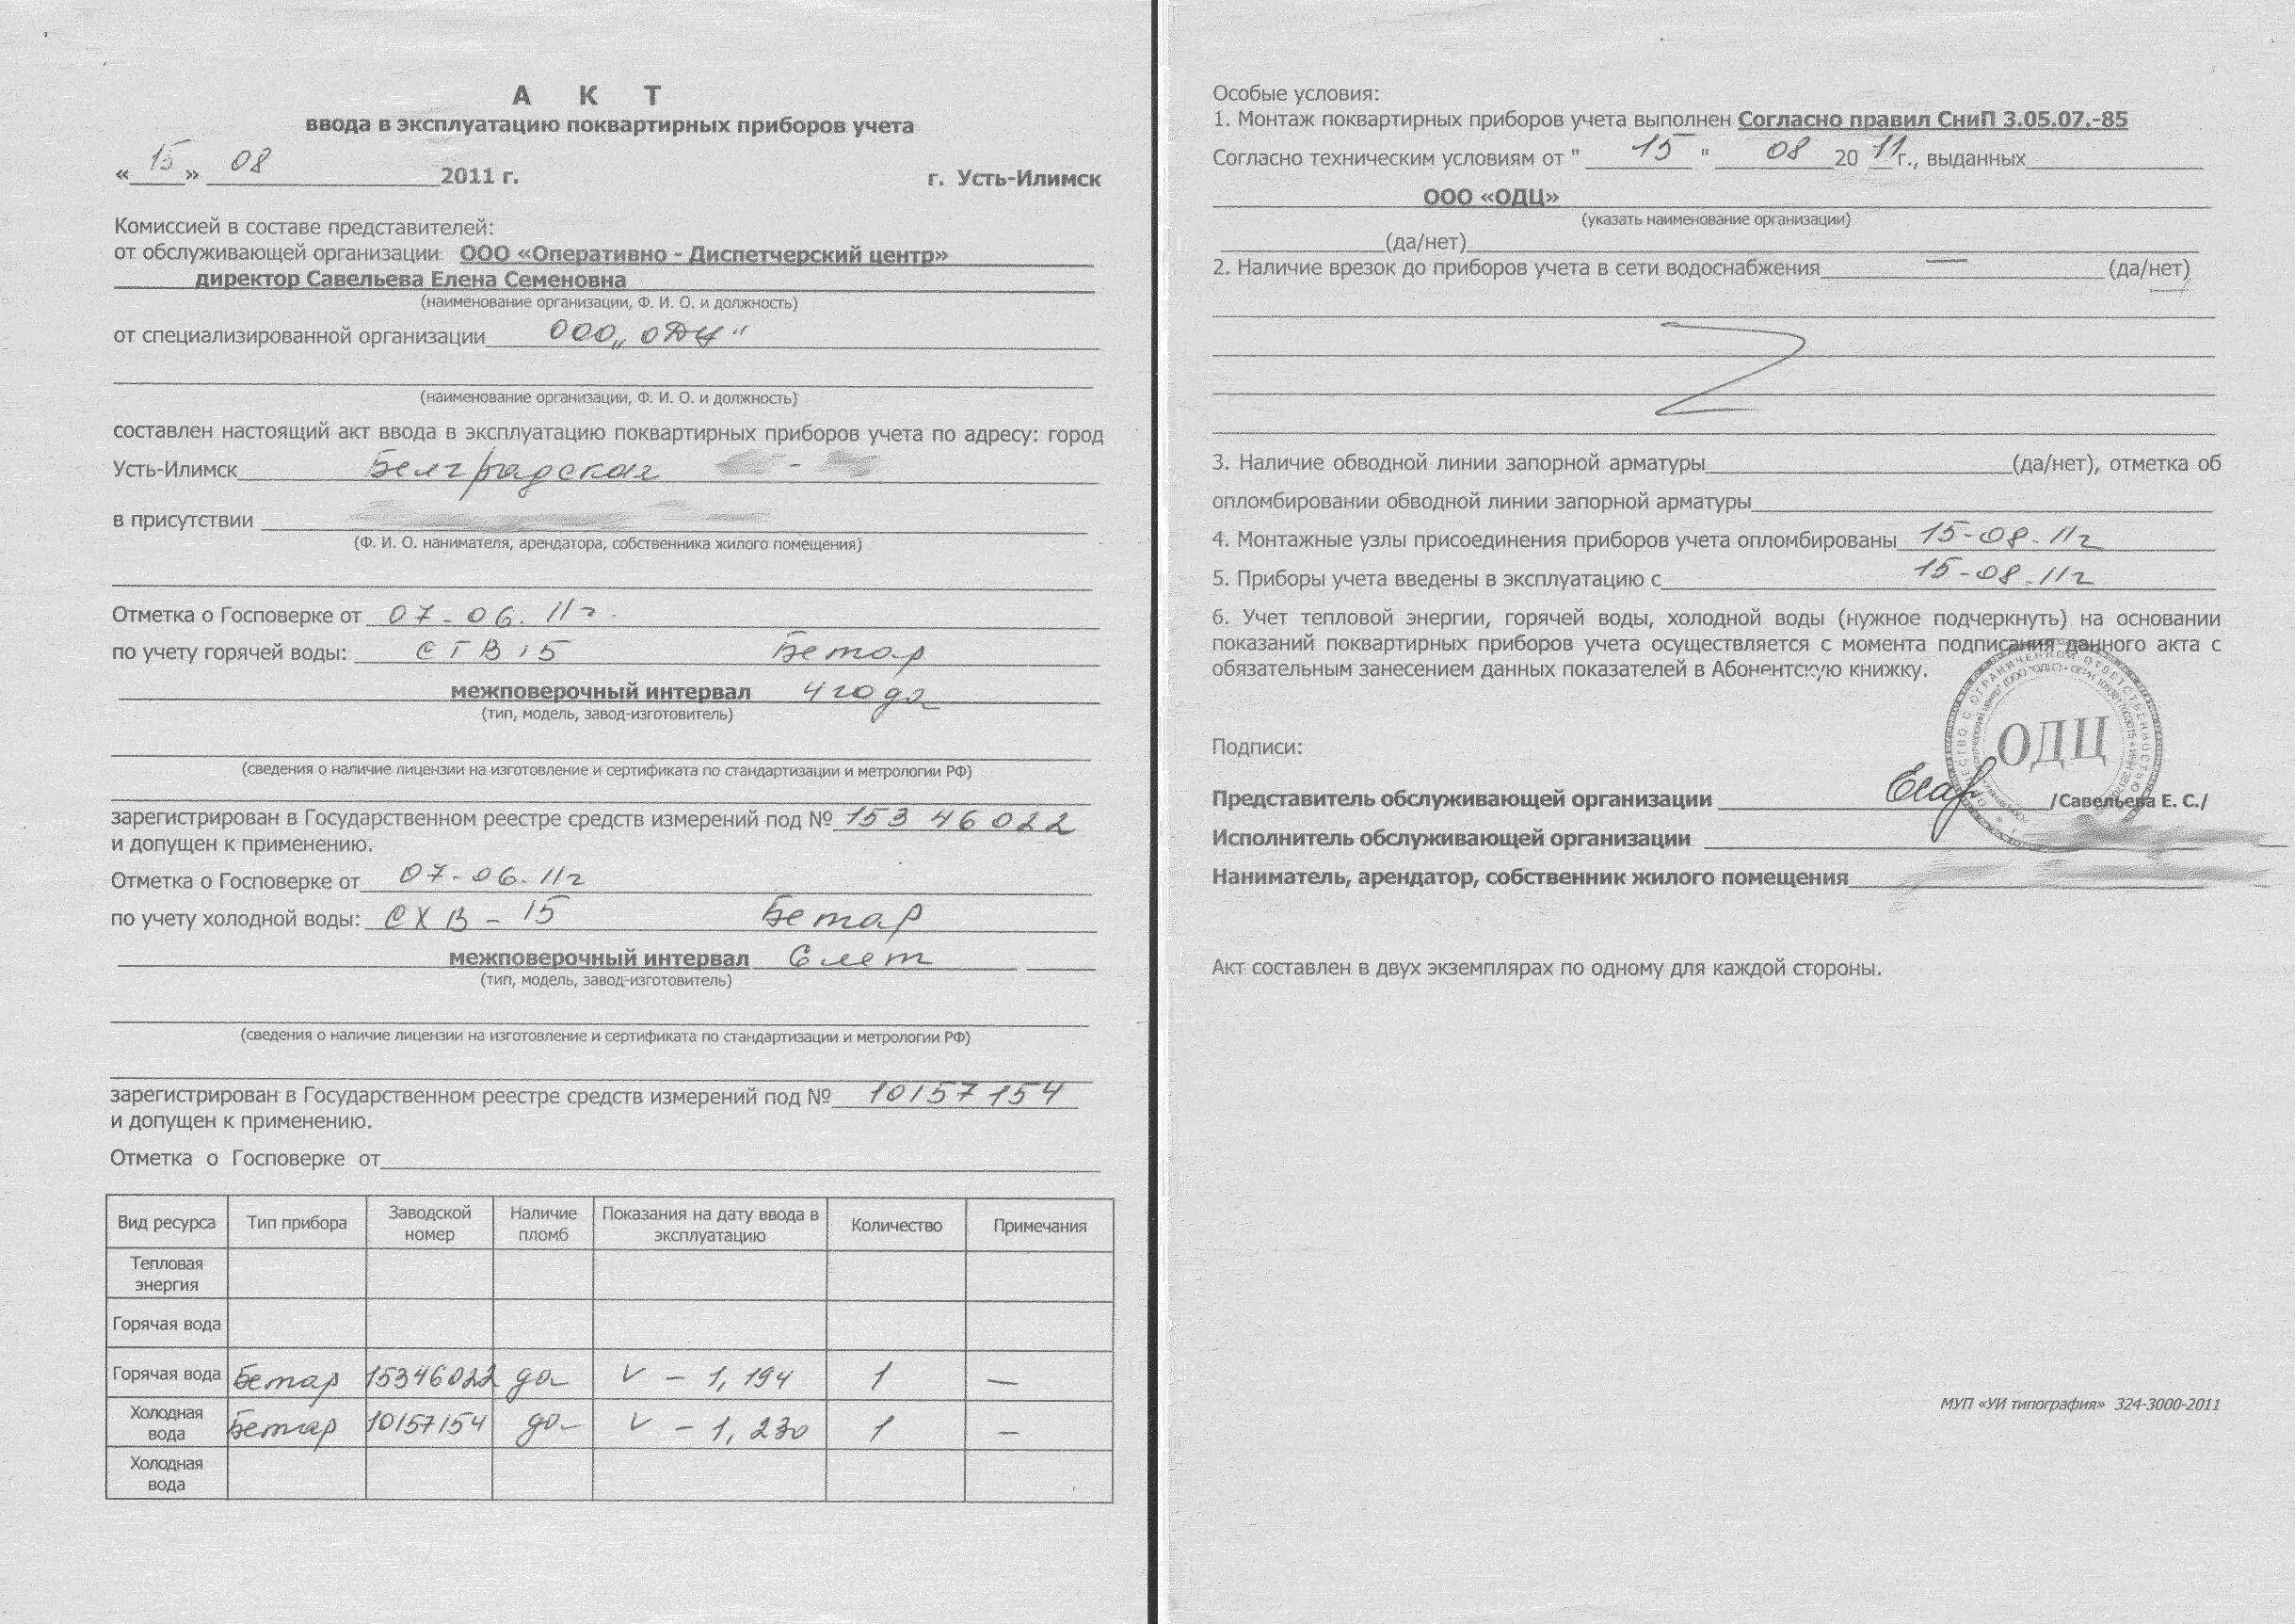 А К Т
ввода в эксплуатацию поквартирных приборов учета
« 15 » 08 2011 г. г. Усть-Илимск
Комиссией в составе представителей:
от обслуживающей организации ООО «Оперативно - Диспетчерский центр»
директор Савельева Елена Семеновна
(наименование организации, Ф. И. О. и должность)
от специализированной организации ООО „ОДЦ"
(наименование организации, Ф. И. О. и должность)
составлен настоящий акт ввода в эксплуатацию поквартирных приборов учета по адресу: город
Усть-Илимск Белградская -
в присутствии
(Ф. И. О. нанимателя, арендатора, собственника жилого помещения)
Отметка о Госповерке от 07-06.11г.
по учету горячей воды: СГВ 15 Бетар
межповерочный интервал 4 года
(тип, модель, завод-изготовитель)
(сведения о наличие лицензии на изготовление и сертификата по стандартизации и метрологии РФ)
зарегистрирован в Государственном реестре средств измерений под № 153 46022
и допущен к применению.
Отметка о Госповерке от 07-06.11г
по учету холодной воды: СХВ - 15 Бетар
межповерочный интервал 6 лет
(тип, модель, завод-изготовитель)
(сведения о наличие лицензии на изготовление и сертификата по стандартизации и метрологии РФ)
зарегистрирован в Государственном реестре средств измерений под № 10157154
и допущен к применению.
Отметка о Госповерке от
Вид ресурса Тип прибора Заводской номер Наличие пломб Показания на дату ввода в эксплуатацию Количество Примечания
Тепловая энергия
Горячая вода
Горячая вода Бетар 15346022 да V - 1,194 1 —
Холодная вода Бетар 10157154 да V - 1,230 1 —
Холодная вода
Особые условия:
1. Монтаж поквартирных приборов учета выполнен Согласно правил СниП 3.05.07.-85
Согласно техническим условиям от " 15 " 08 20 11 г., выданных
ООО «ОДЦ»
(указать наименование организации)
(да/нет)
2. Наличие врезок до приборов учета в сети водоснабжения — (да/нет)
3. Наличие обводной линии запорной арматуры (да/нет), отметка об
опломбировании обводной линии запорной арматуры
4. Монтажные узлы присоединения приборов учета опломбированы 15-08.11г
5. Приборы учета введены в эксплуатацию с 15-08.11г
6. Учет тепловой энергии, горячей воды, холодной воды (нужное подчеркнуть) на основании
показаний поквартирных приборов учета осуществляется с момента подписания данного акта с
обязательным занесением данных показателей в Абонентскую книжку.
ОДЦ
Подписи:
Представитель обслуживающей организации /Савельева Е. С./
Исполнитель обслуживающей организации
Наниматель, арендатор, собственник жилого помещения
Акт составлен в двух экземплярах по одному для каждой стороны.
МУП «УИ типография» 324-3000-2011